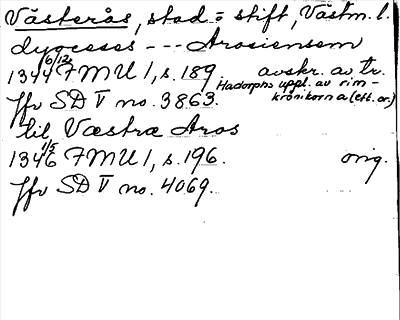 Västerås, stad = stift, Västm. l.
dyocesis --- Arosiensem
1344 6/12 FMU 1, s. 189. avskr. av tr.
Hadorphs uppl. av rim-
Jfr SD V no. 3863. krönikorna (eft. or.)
til Væstra Aros
1346 1/5 FMU 1, s. 196. orig.
Jfr SD V no. 4069.